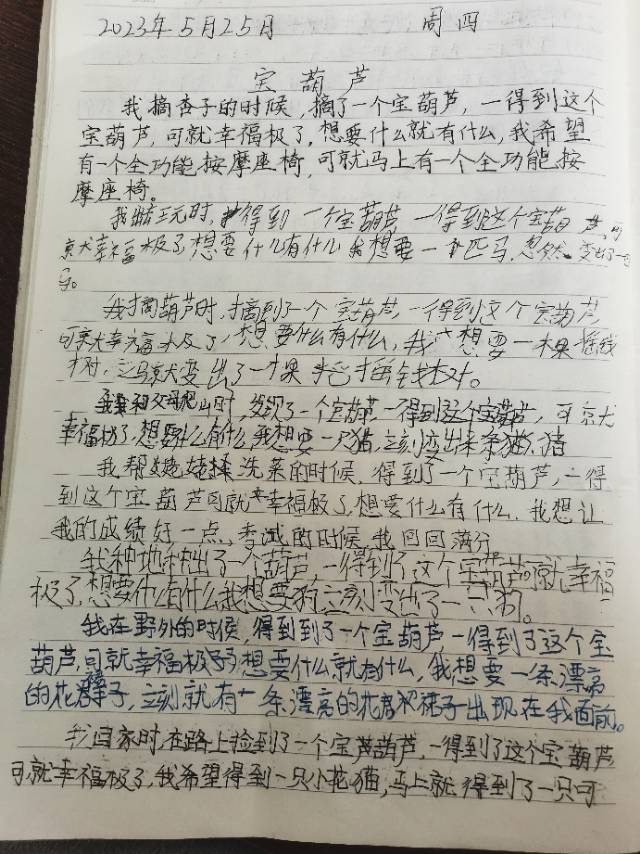 2023年5月25日 周四
宝葫芦
我摘杏子的时候,摘了一个宝葫芦,一得到这个
宝葫芦,可就幸福极了,想要什么就有什么,我希望
有一个全功能按摩座椅,可就马上有一个全功能按
摩座椅。
我踏玩时,得到一个宝葫芦一得到这个宝葫芦,可
就幸福极了想要什么有什么我想要一匹马,忽然变出了一
我摘葫芦时,摘到了一个宝葫芦,一得到这个宝葫芦
可就幸福极了,想要什么有什么,我想要一棵摇钱
树,立马就变出了一棵摇钱树。
我和父母爬山时,发现了一个宝葫芦一得到这个宝葫芦,可就
幸福极了,想要什么有什么,我想要一只猫,立刻变出来条猫猫
我帮姥姥择洗菜的时候,得到了一个宝葫芦,一得
到这个宝葫芦可就幸福极了,想要什么有什么,我想让
我的成绩好一点,考试的时候我回回满分
我种地种出了一个葫芦,一得到了这个宝葫芦可就幸福
极了,想要什么有什么我想要狗立刻变出了一只狗。
我在野外的时候,得到到了一个宝葫芦,一得到了这个宝
葫芦,可就幸福极了,想要什么就有什么,我想要一条漂亮
的花裙子,立刻就有一条漂亮的花裙子出现在我面前。
我回家时,在路上捡到了一个宝葫芦,一得到了这个宝葫芦
可就幸福极了,我希望得到一只小花猫,马上就得到了一只可